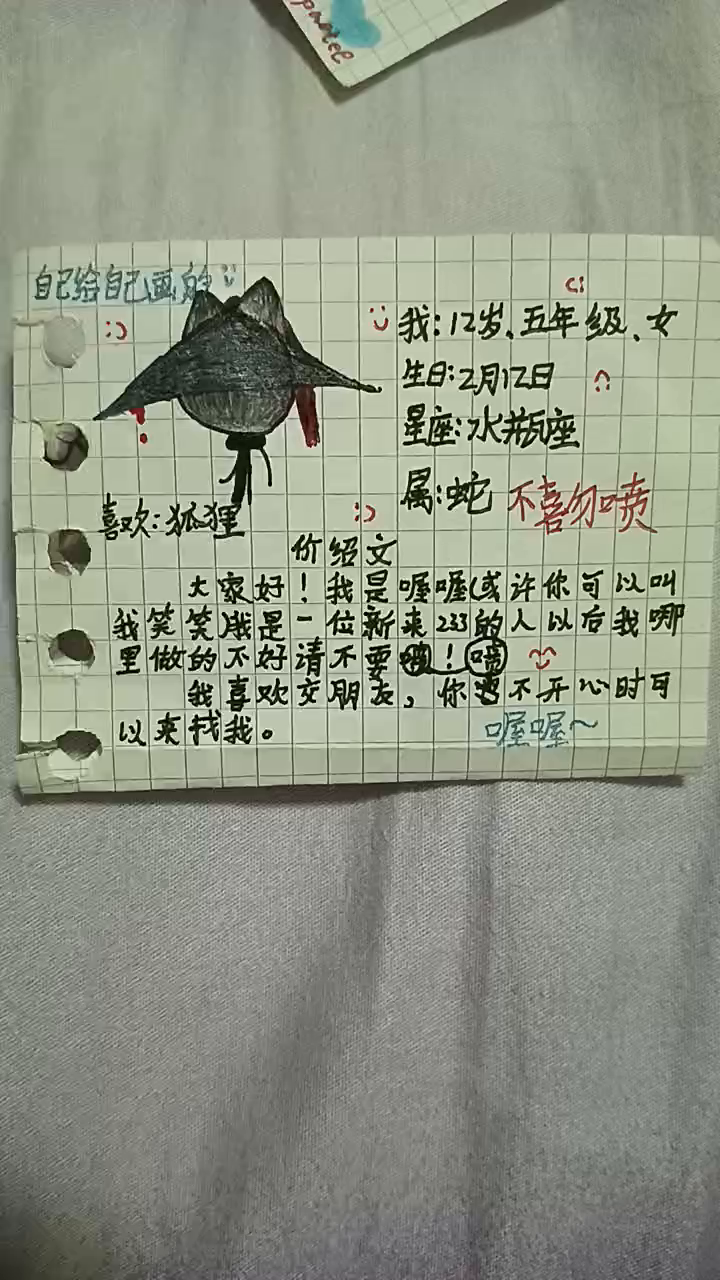 pastel
自己给自己画的
我:12岁、五年级、女
生日:2月12日
星座:水瓶座
属:蛇 不喜勿喷
喜欢:狐狸
价绍文
大家好！我是喔喔(或许你可以叫
我笑笑)我是一位新来233的人以后我哪
里做的不好请不要！喷
我喜欢交朋友，你不开心时可
以来找我。
喔喔~